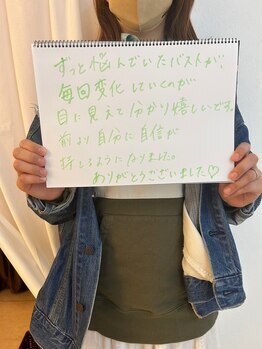 ずっと悩んでいたバストが、
毎回変化していくのが
目に見えて分かり嬉しいです。
前より自分に自信が
持てるようになりました。
ありがとうございました♡